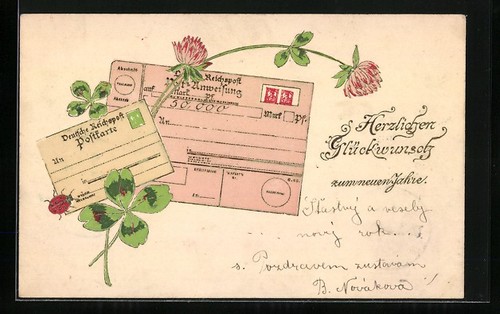 Abschnitt
Deutsche Reichspost
Postkarte
An
Reichspost
Post-Anweisung
auf Mark Pf.
50.000 Mark Pf.
An
Herzlichen
Glückwunsch
zum neuen Jahre.
Šťastný a veselý
nový rok...
s. Pozdravem zustávám
B. Nováková